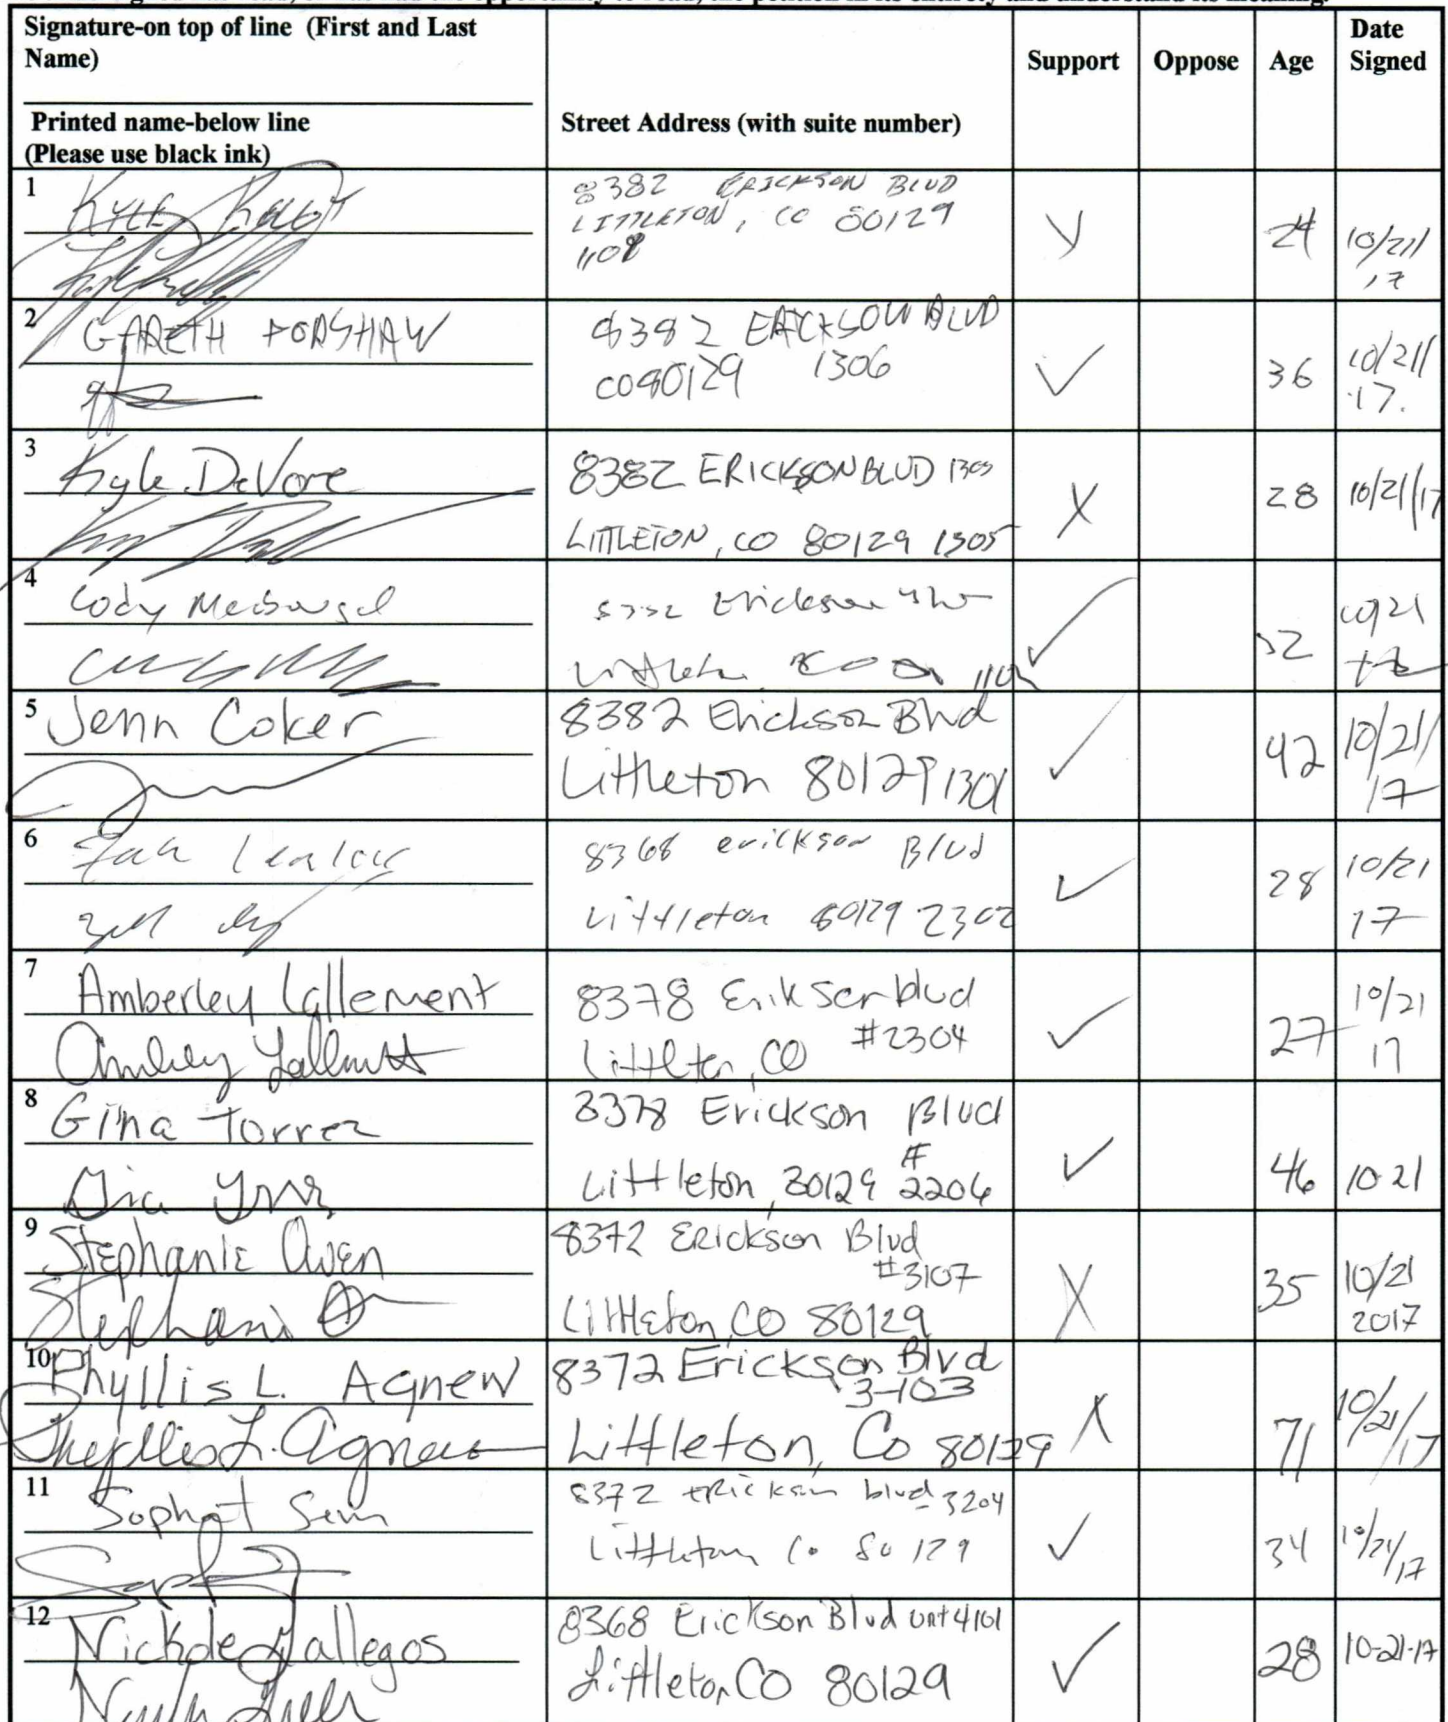 Signature-on top of line (First and Last
Name)
Printed name-below line
(Please use black ink)
Street Address (with suite number)
Support
Oppose
Age
Date
Signed
1
Kyle
8382 ERICKSON BLVD
LITTLETON, CO 80129
1108
24
10/21/
17
2
GARETH FORSHAW
8382 ERICKSON BLVD
CO80129 1306
36
10/21/
17.
3
Kyle DeVore
8382 ERICKSON BLVD
LITTLETON, CO 80129 1305
28
10/21/17
4
Cody
Erickson
32
5
Jenn Coker
8382 Erickson Blvd
Littleton 80129 1301
42
10/21/
17
6
8368 erickson Blvd
Littleton 80129 2302
28
10/21
17
7
Amberley Lallement
Amberley Lallement
8378 Erikson blvd
#2304
Littleton, CO
27
10/21
17
8
Gina Torrez
8378 Erickson Blvd
#
Littleton, 80129 2206
46
10-21
9
Stephanie Owen
Stephanie
8372 Erickson Blvd
#3107
Littleton, CO 80129
35
10/21
2017
10
Phyllis L. Agnew
Phyllis L. Agnew
8372 Erickson Blvd
3-103
Littleton, Co 80129
71
10/21/17
11
Sophat
8372 Erickson blvd 3204
Littleton Co 80129
34
10/21/17
12
Nickole Gallegos
8368 Erickson Blvd unt 4101
Littleton CO 80129
28
10-21-17